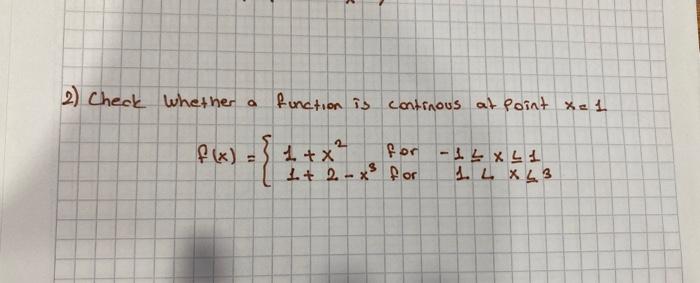 2) Check whether a function is continous at point x = 1
f(x) = { 1 + x² for -1 ≤ x ≤ 1
1 + 2 - x³ for 1 < x ≤ 3